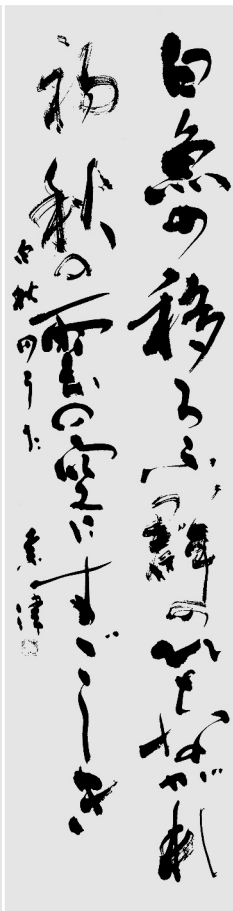 白魚の移ろふ群のひとながれ
初秋の雲の空にすゞしき
白秋のうた